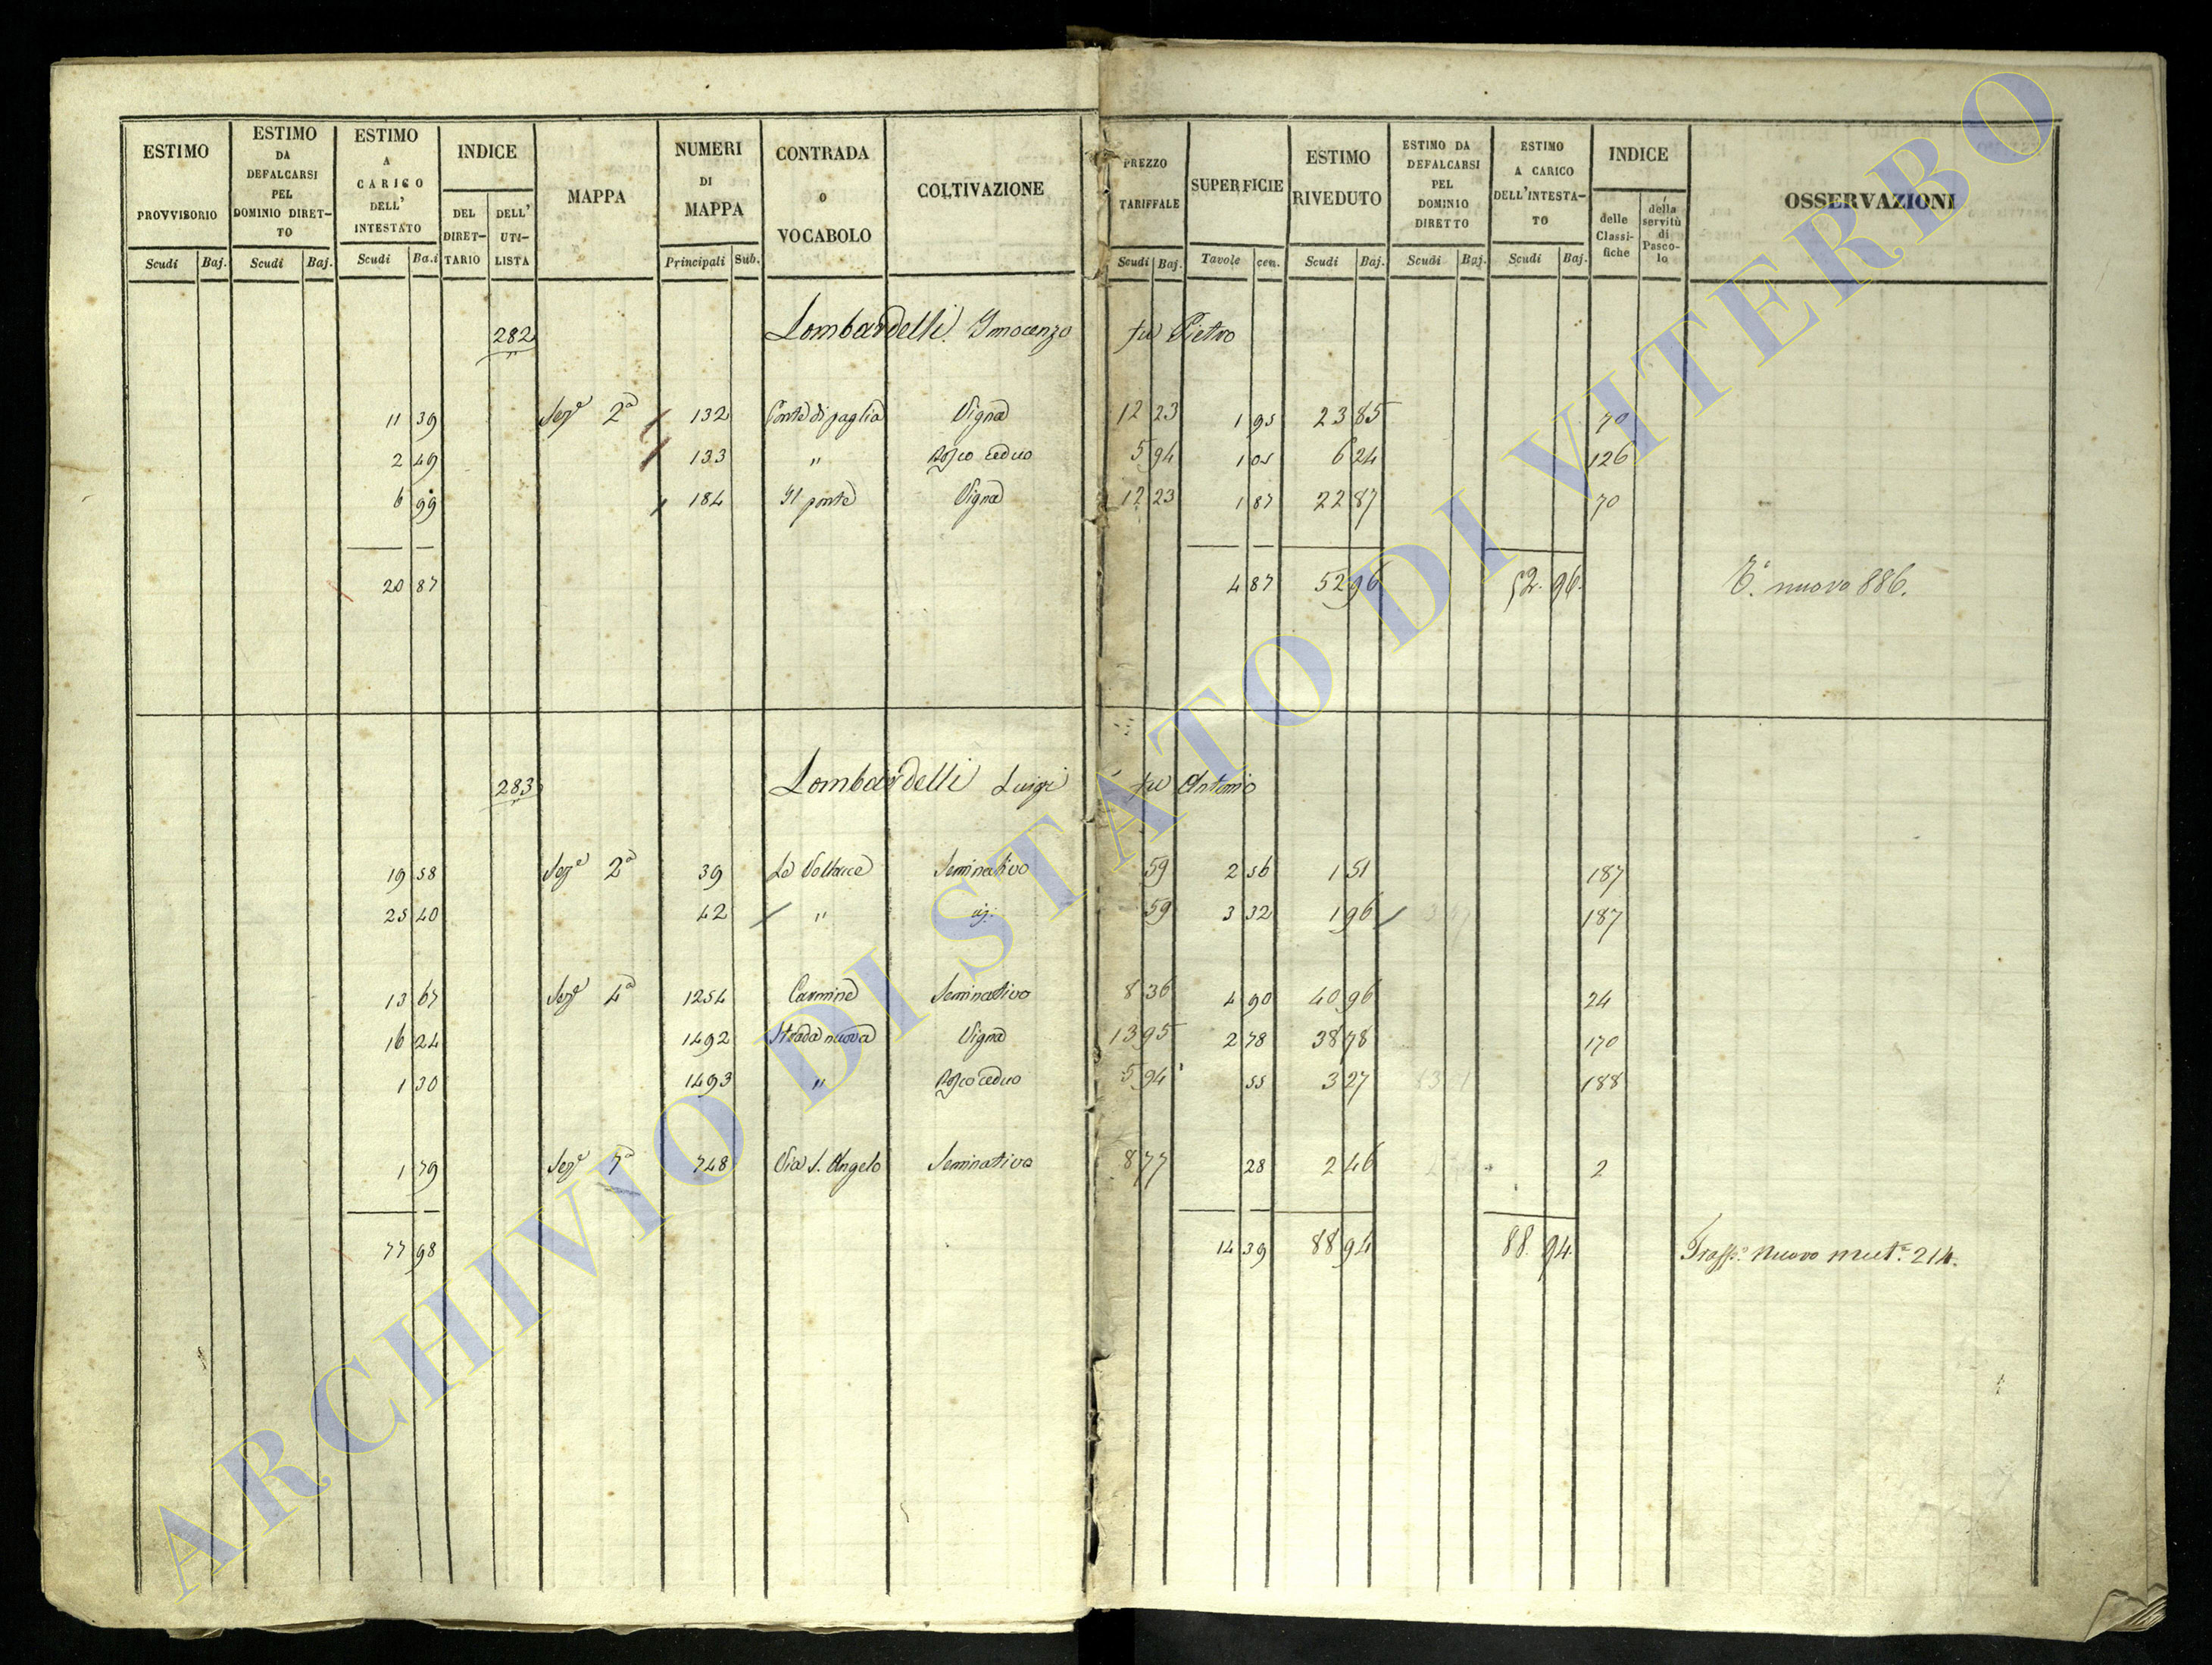 ESTIMO PROVVISORIO Scudi Baj.
ESTIMO DA DEFALCARSI PEL DOMINIO DIRET-TO Scudi Baj.
ESTIMO A CARICO DELL' INTESTATO Scudi Ba.i
INDICE DEL DIRET-TARIO DELL' UTI-LISTA
MAPPA
NUMERI DI MAPPA Principali Sub.
CONTRADA O VOCABOLO
COLTIVAZIONE
PREZZO TARIFFALE Scudi Baj.
SUPERFICIE Tavole cen.
ESTIMO RIVEDUTO Scudi Baj.
ESTIMO DA DEFALCARSI PEL DOMINIO DIRETTO Scudi Baj.
ESTIMO A CARICO DELL'INTESTA-TO Scudi Baj.
INDICE delle Classi-fiche della servitù di Pasco-lo
OSSERVAZIONI
282 Lombardelli Innocenzo fu Pietro
11 39 Sezᵉ 2ª 132 Ponte di paglia Vigna 12 23 1 95 23 85 70
2 49 133 " Bosco ceduo 5 94 1 05 6 24 126
6 99 184 Il ponte Vigna 12 23 1 87 22 87 70
20 87 4 87 52 96 52. 96. T. nuovo 886.
283 Lombardelli Luigi fu Antonio
19 58 Sezᵉ 2ª 39 Le Seminativo 59 2 56 1 51 187
25 40 42 " id. 59 3 32 1 96 187
13 67 Sezᵉ 4ª 1254 Carmine Seminativo 8 36 4 90 40 96 24
16 24 1492 Strada nuova Vigna 13 95 2 78 38 78 170
1 30 1493 " Bosco ceduo 5 94 55 3 27 188
1 79 Sezᵉ 7ª 748 Via S. Angelo Seminativo 8 77 28 2 46 2
77 98 14 39 88 94 88. 94. Trasp.º nuovo 214.
ARCHIVIO DI STATO DI VITERBO